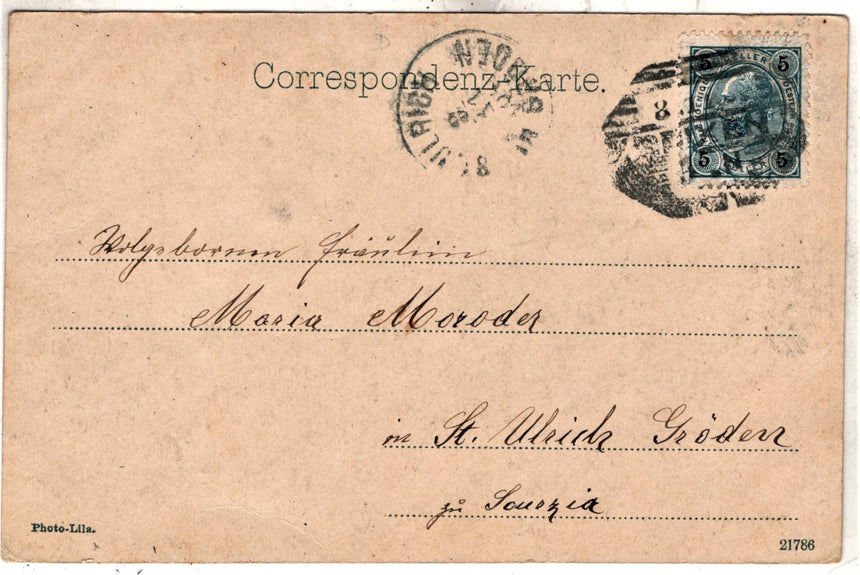 Correspondenz-Karte.
ST. ULRICH GRÖDEN
5 HELLER 5
5 5
8
Wolgebornen Fräulein
Maria Moroder
in St. Ulrich Gröden
zu Scurzia
Photo-Lila.
21786